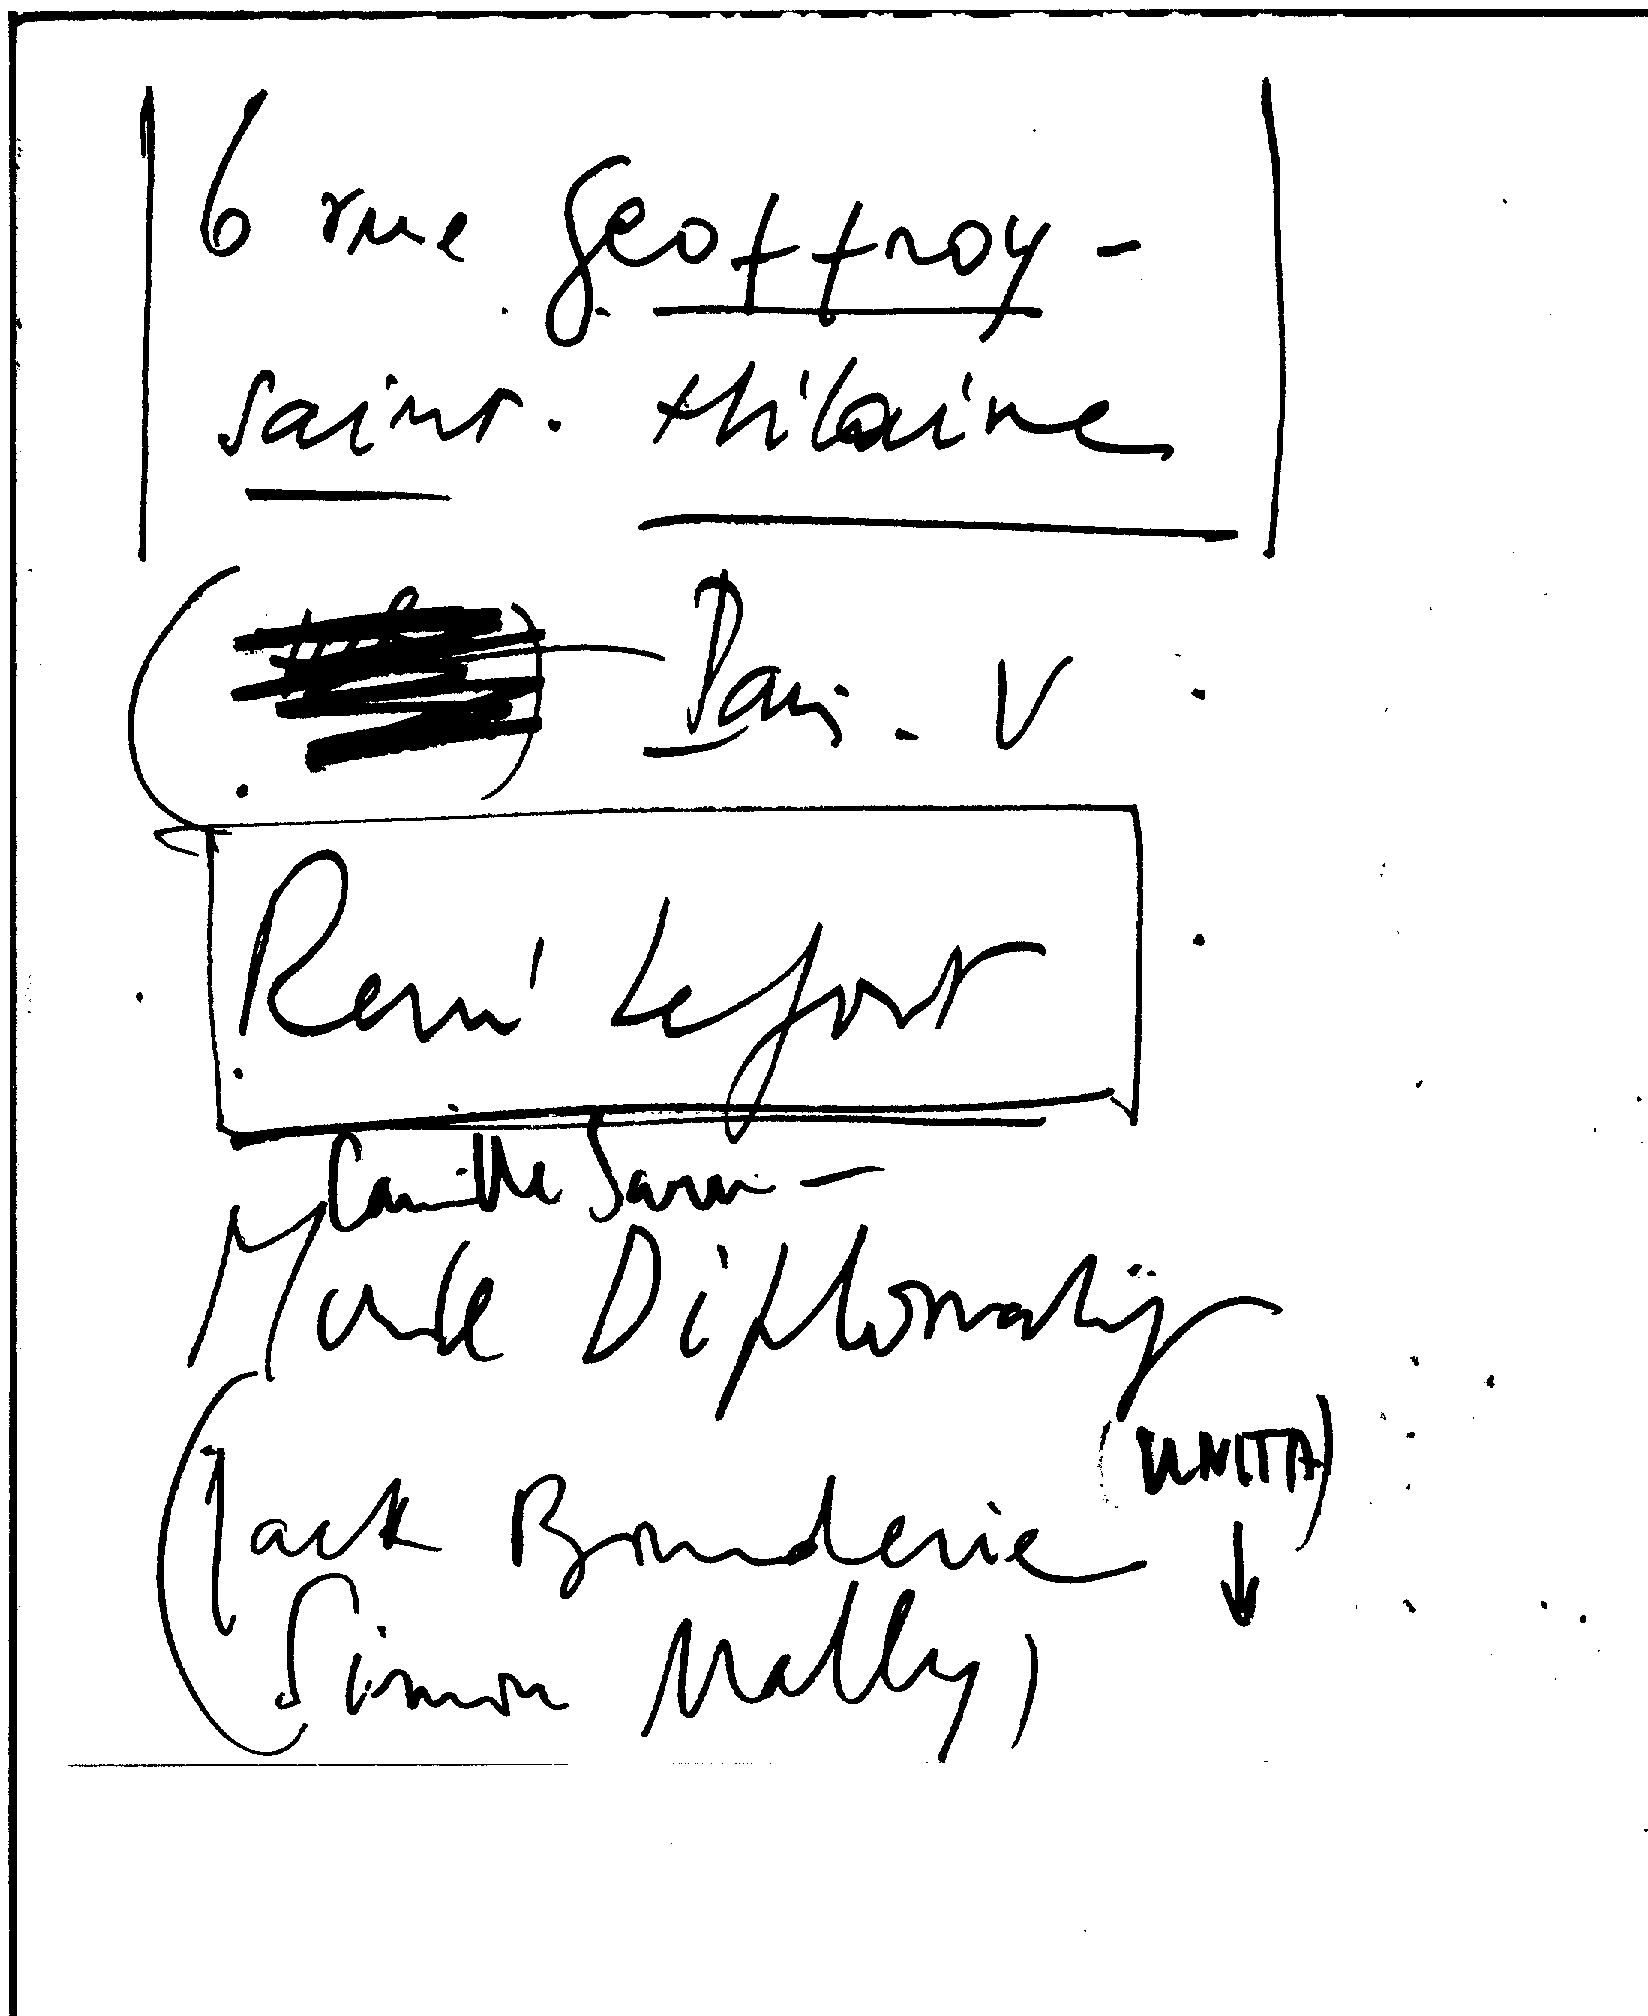 6 rue Geoffroy -
Saint. Hilaire
Paris. V
René Lefort
Camille Sarin -
Monde Diplomatiq
(UNITA)
(Jack Bourderie
Simon Malley)